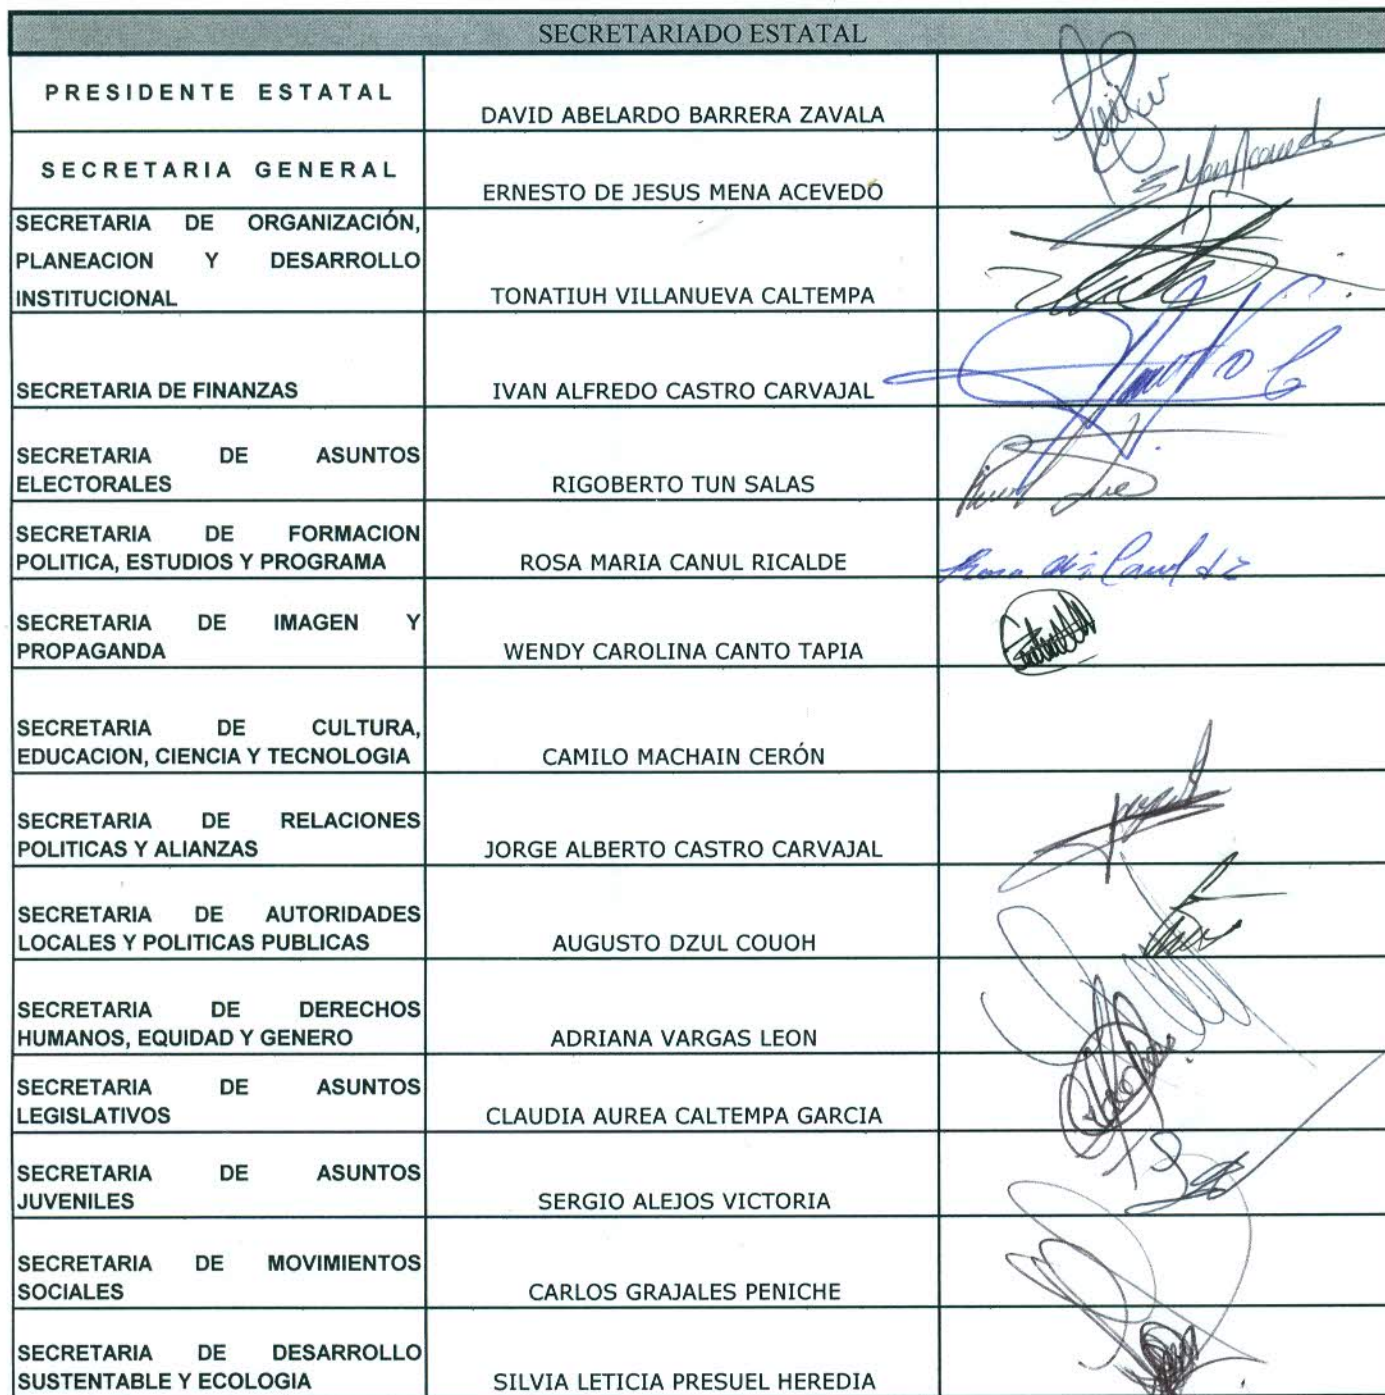 SECRETARIADO ESTATAL
PRESIDENTE ESTATAL
DAVID ABELARDO BARRERA ZAVALA
SECRETARIA GENERAL
ERNESTO DE JESUS MENA ACEVEDO
SECRETARIA DE ORGANIZACIÓN,
PLANEACION Y DESARROLLO
INSTITUCIONAL
TONATIUH VILLANUEVA CALTEMPA
SECRETARIA DE FINANZAS
IVAN ALFREDO CASTRO CARVAJAL
SECRETARIA DE ASUNTOS
ELECTORALES
RIGOBERTO TUN SALAS
SECRETARIA DE FORMACION
POLITICA, ESTUDIOS Y PROGRAMA
ROSA MARIA CANUL RICALDE
SECRETARIA DE IMAGEN Y
PROPAGANDA
WENDY CAROLINA CANTO TAPIA
SECRETARIA DE CULTURA,
EDUCACION, CIENCIA Y TECNOLOGIA
CAMILO MACHAIN CERÓN
SECRETARIA DE RELACIONES
POLITICAS Y ALIANZAS
JORGE ALBERTO CASTRO CARVAJAL
SECRETARIA DE AUTORIDADES
LOCALES Y POLITICAS PUBLICAS
AUGUSTO DZUL COUOH
SECRETARIA DE DERECHOS
HUMANOS, EQUIDAD Y GENERO
ADRIANA VARGAS LEON
SECRETARIA DE ASUNTOS
LEGISLATIVOS
CLAUDIA AUREA CALTEMPA GARCIA
SECRETARIA DE ASUNTOS
JUVENILES
SERGIO ALEJOS VICTORIA
SECRETARIA DE MOVIMIENTOS
SOCIALES
CARLOS GRAJALES PENICHE
SECRETARIA DE DESARROLLO
SUSTENTABLE Y ECOLOGIA
SILVIA LETICIA PRESUEL HEREDIA